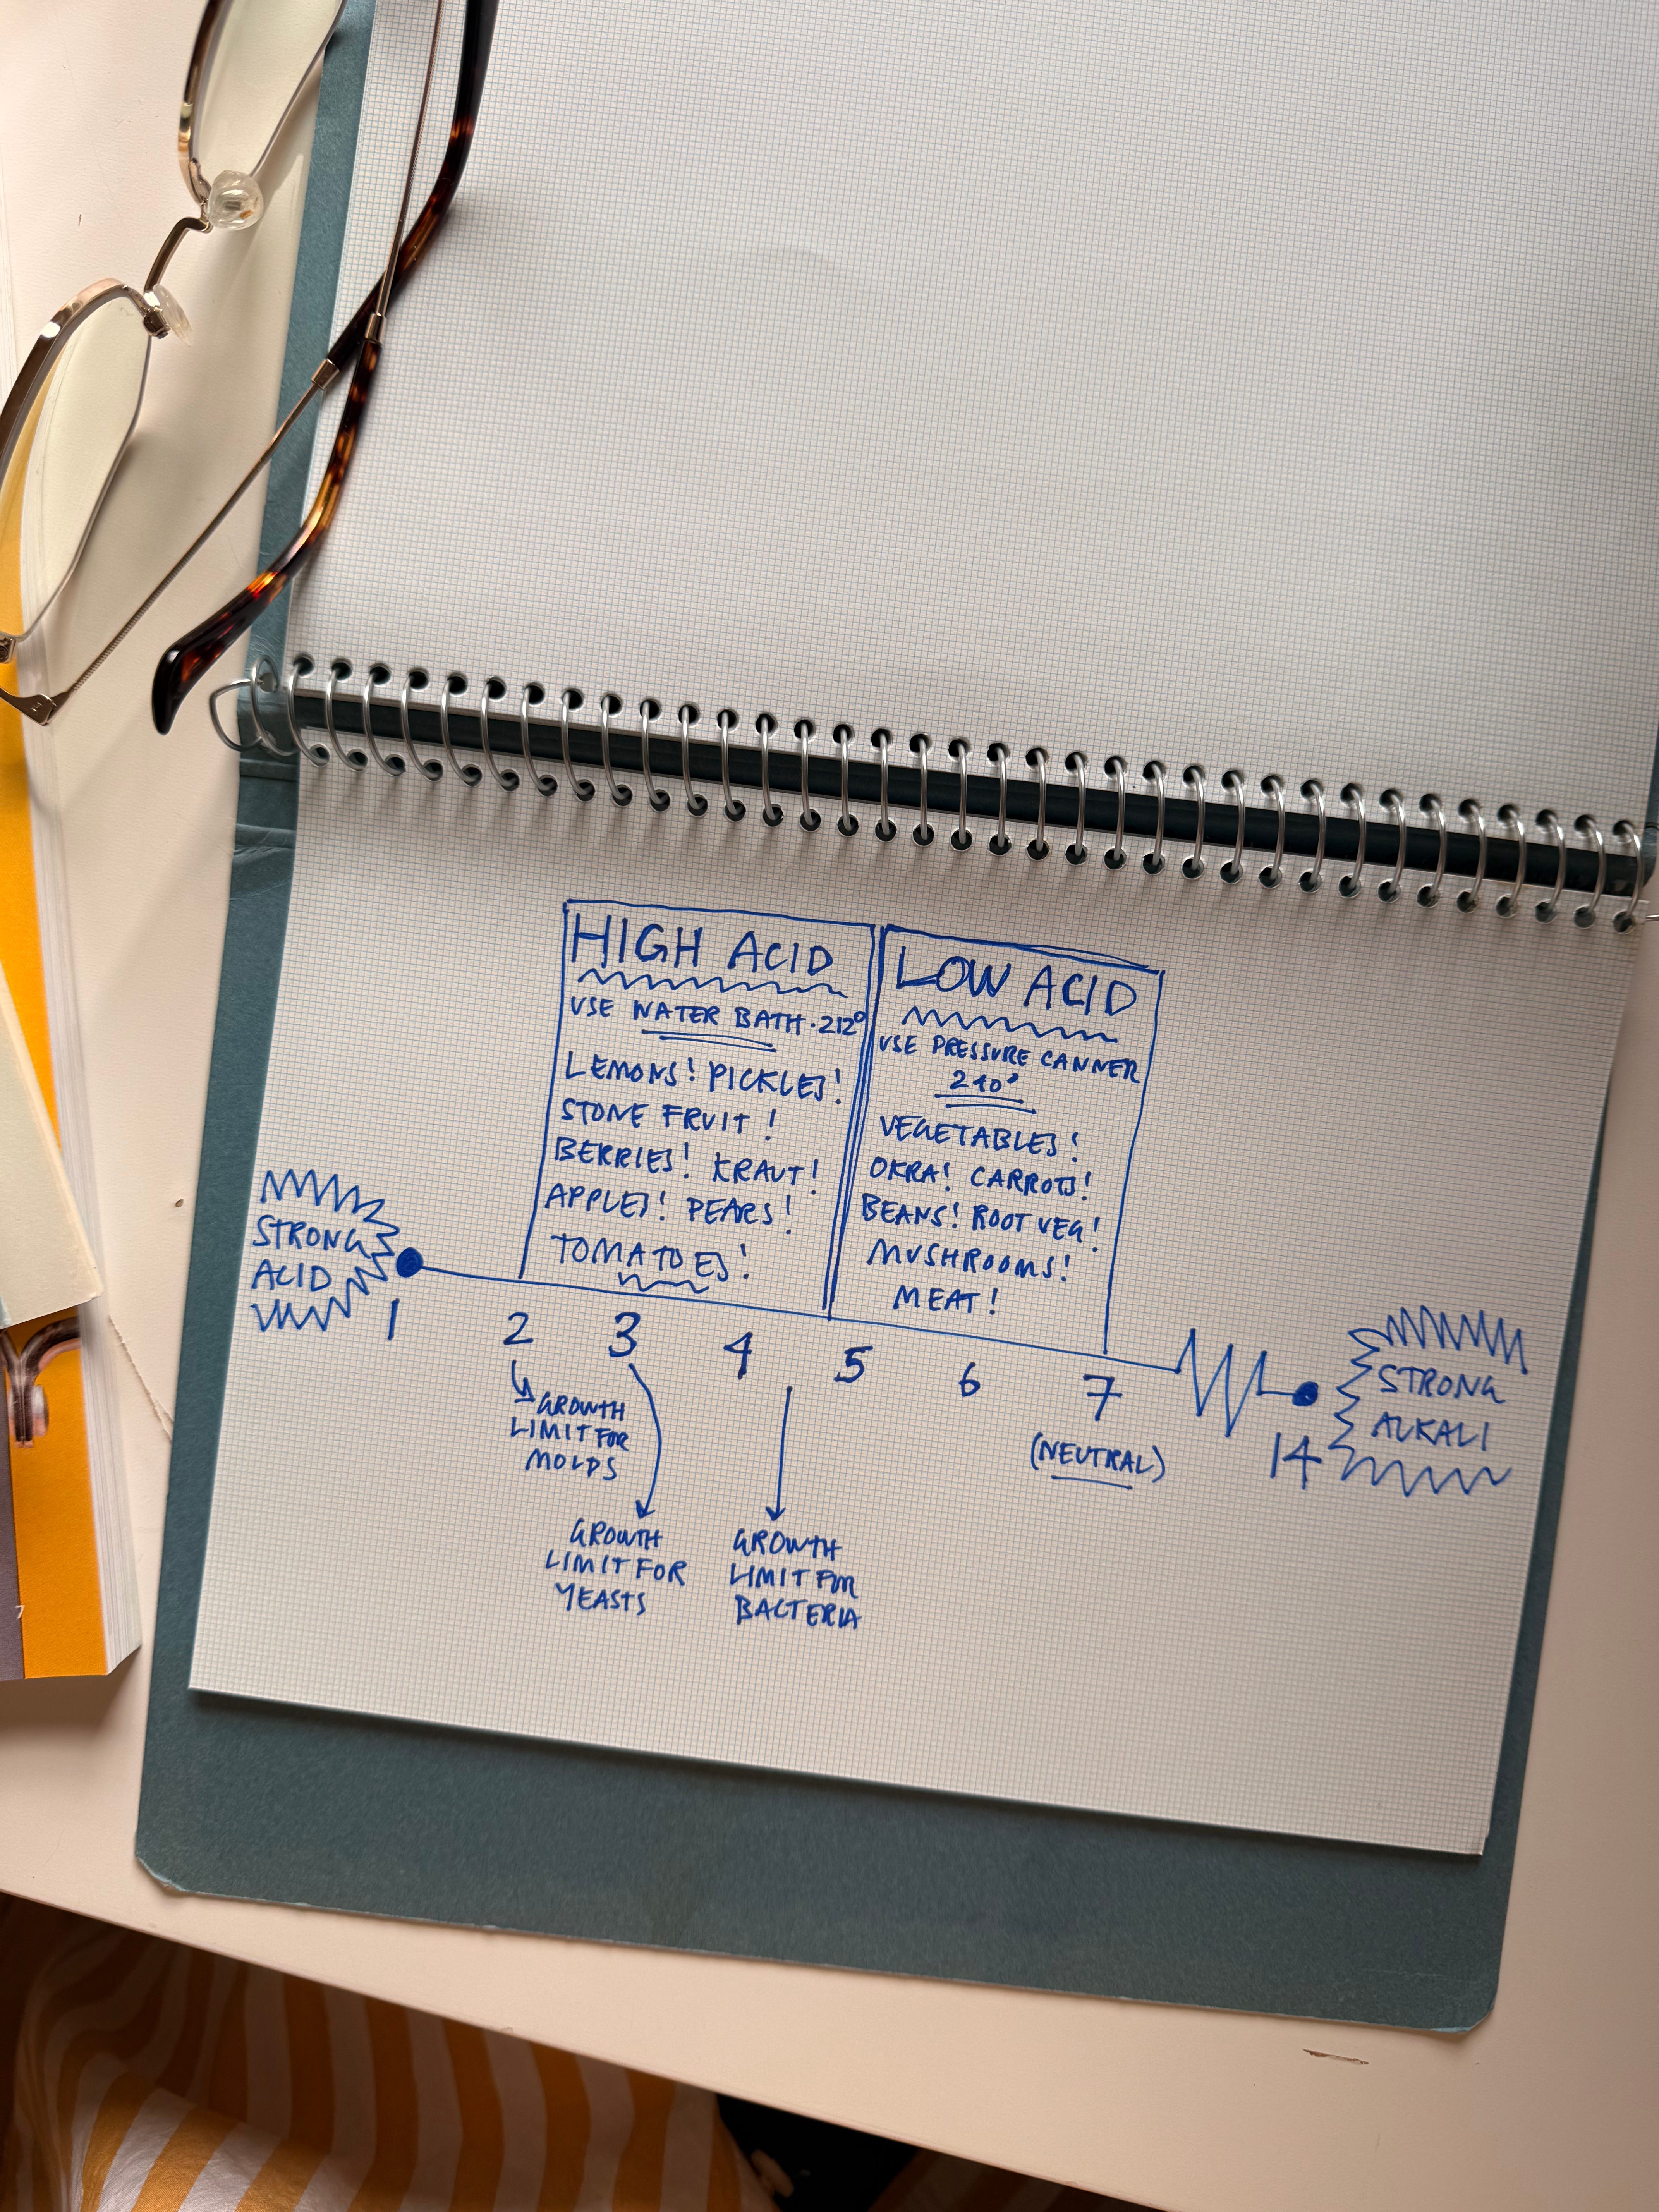 HIGH ACID
USE WATER BATH · 212°
LEMONS! PICKLES!
STONE FRUIT!
BERRIES! KRAUT!
APPLES! PEARS!
TOMATOES!
LOW ACID
USE PRESSURE CANNER
240°
VEGETABLES!
OKRA! CARROTS!
BEANS! ROOT VEG!
MUSHROOMS!
MEAT!
STRONG
ACID
1 2 3 4 5 6 7 14
STRONG
ALKALI
(NEUTRAL)
GROWTH
LIMIT FOR
MOLDS
GROWTH
LIMIT FOR
YEASTS
GROWTH
LIMIT FOR
BACTERIA